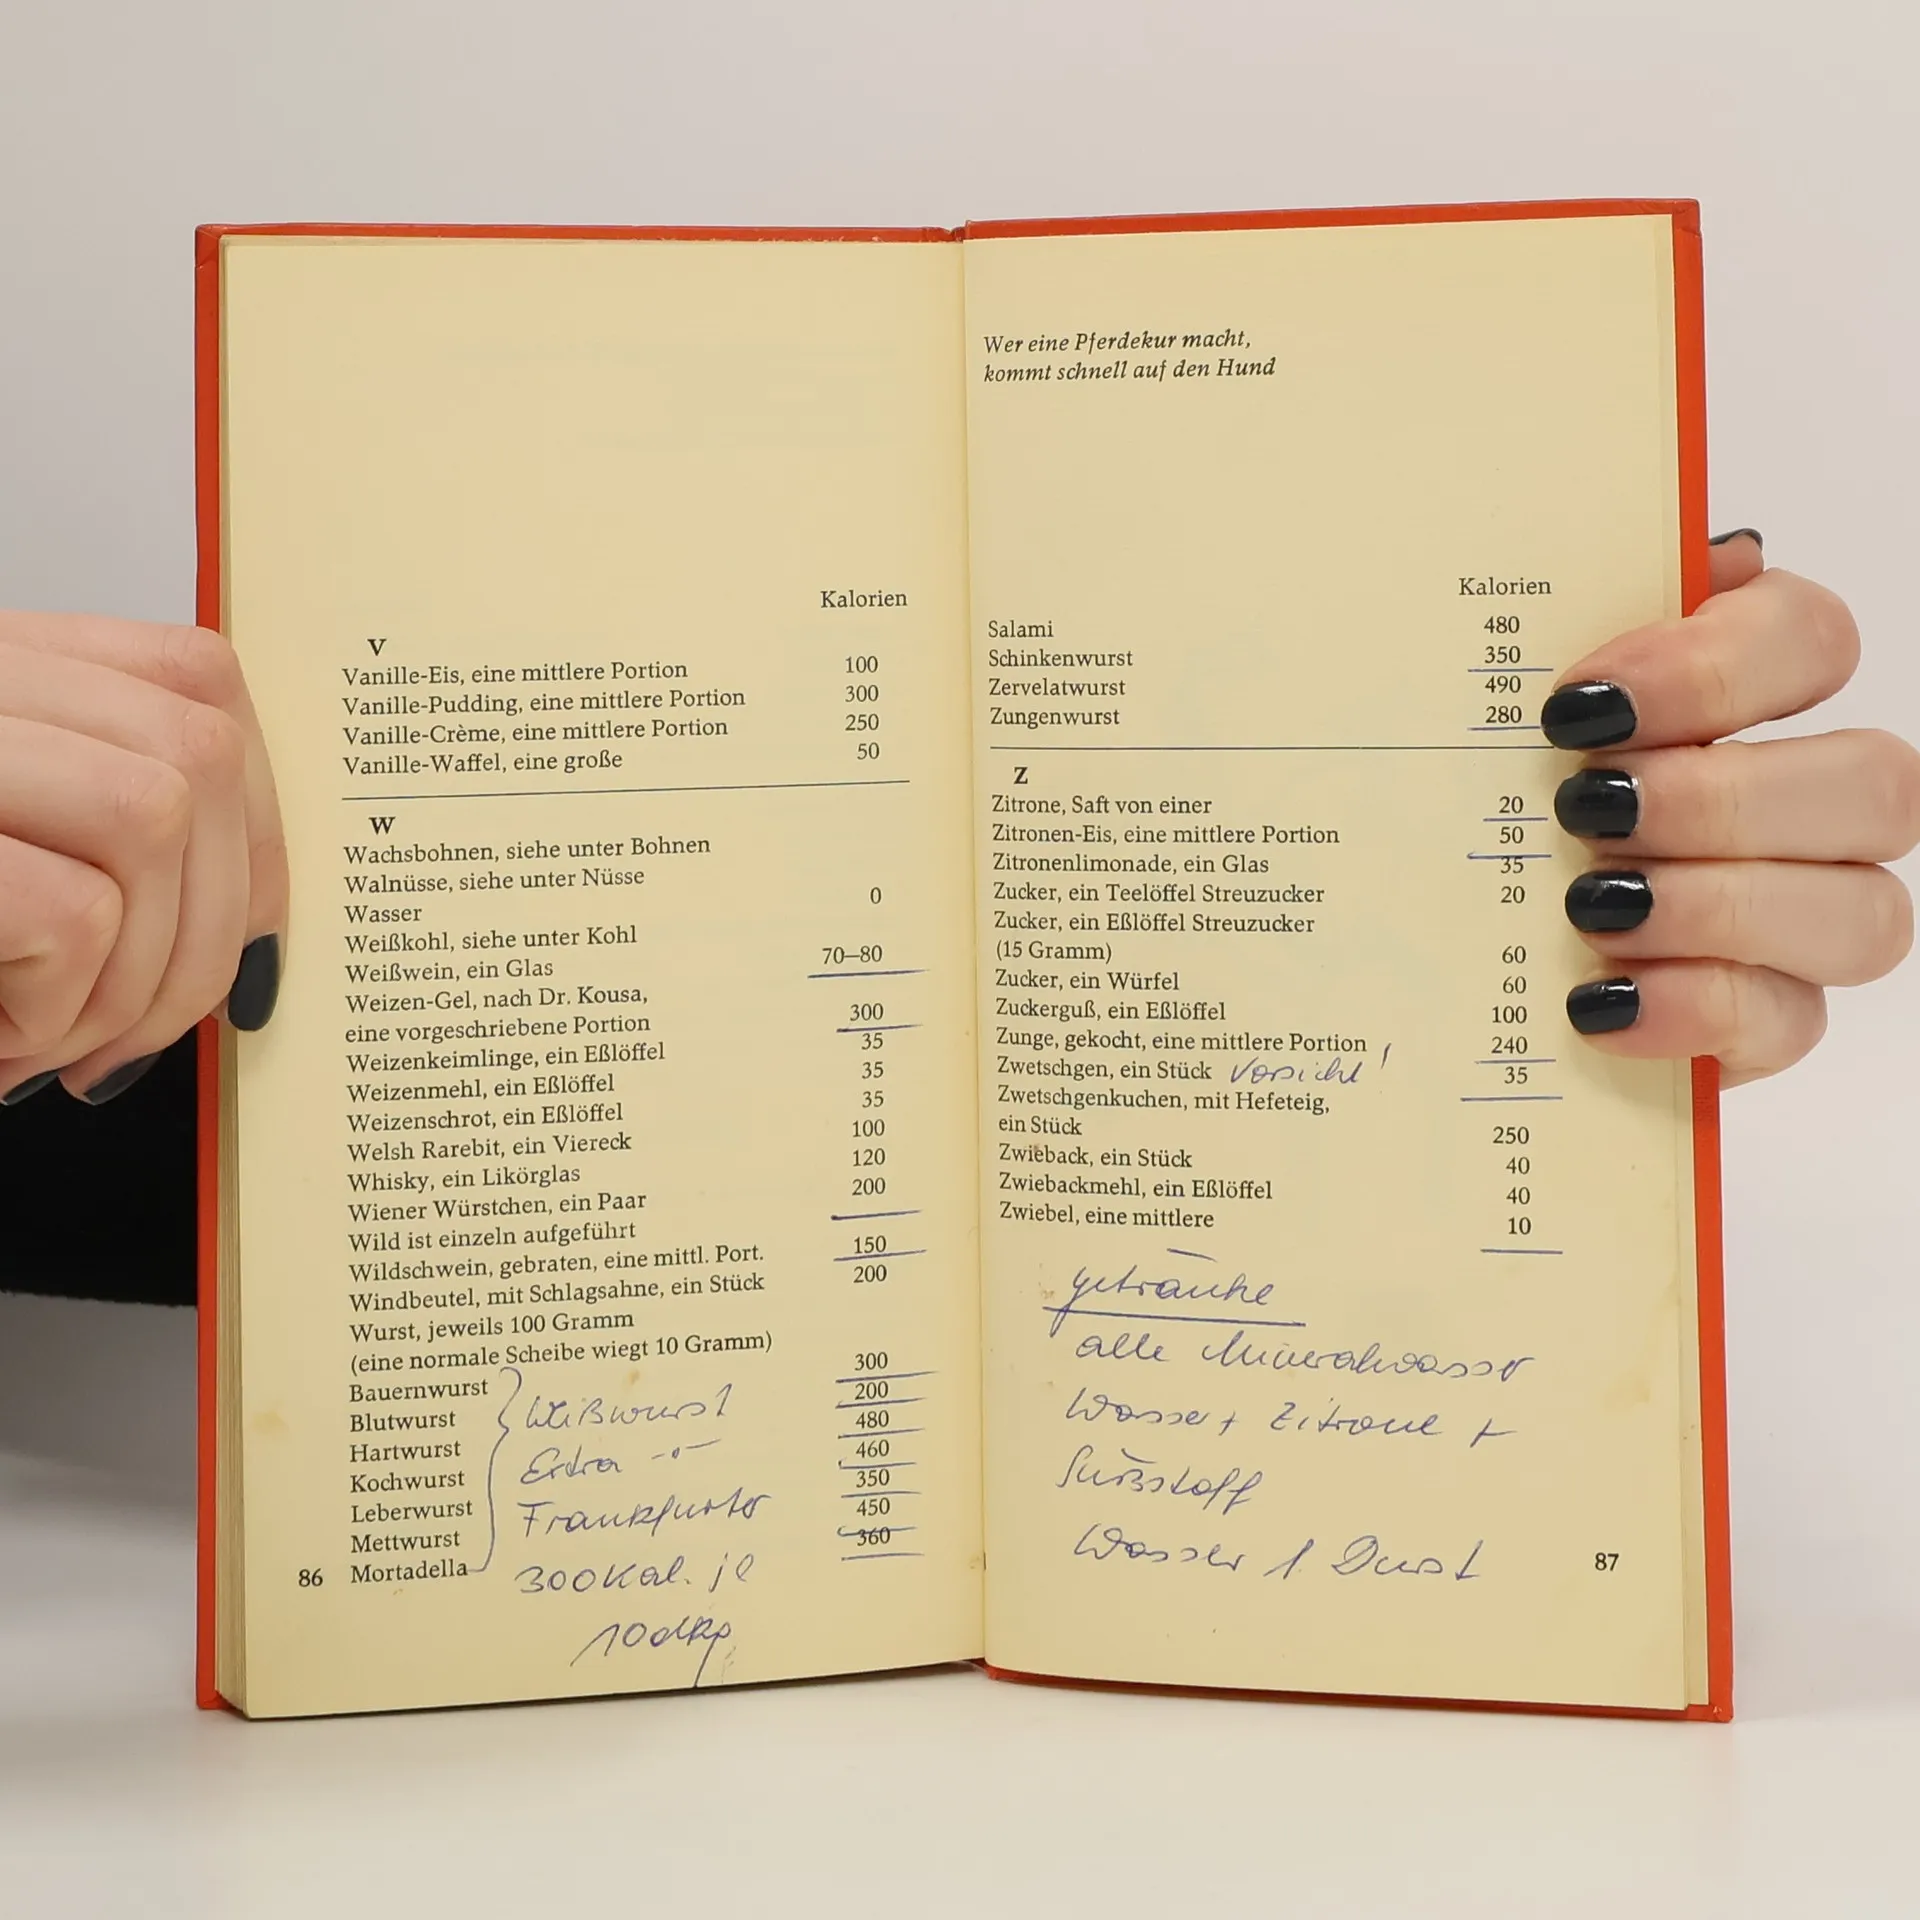 Kalorien
V
Vanille-Eis, eine mittlere Portion 100
Vanille-Pudding, eine mittlere Portion 300
Vanille-Crème, eine mittlere Portion 250
Vanille-Waffel, eine große 50
W
Wachsbohnen, siehe unter Bohnen
Walnüsse, siehe unter Nüsse
Wasser 0
Weißkohl, siehe unter Kohl
Weißwein, ein Glas 70–80
Weizen-Gel, nach Dr. Kousa,
eine vorgeschriebene Portion 300
Weizenkeimlinge, ein Eßlöffel 35
Weizenmehl, ein Eßlöffel 35
Weizenschrot, ein Eßlöffel 35
Welsh Rarebit, ein Viereck 100
Whisky, ein Likörglas 120
Wiener Würstchen, ein Paar 200
Wild ist einzeln aufgeführt
Wildschwein, gebraten, eine mittl. Port. 150
Windbeutel, mit Schlagsahne, ein Stück 200
Wurst, jeweils 100 Gramm
(eine normale Scheibe wiegt 10 Gramm)
Bauernwurst 300
Blutwurst 200
Hartwurst 480
Kochwurst 460
Leberwurst 350
Mettwurst 450
Mortadella 360
Weißwurst
Extra -"-
Frankfurter
300 Kal. je
10 dkg
86
Wer eine Pferdekur macht,
kommt schnell auf den Hund
Kalorien
Salami 480
Schinkenwurst 350
Zervelatwurst 490
Zungenwurst 280
Z
Zitrone, Saft von einer 20
Zitronen-Eis, eine mittlere Portion 50
Zitronenlimonade, ein Glas 35
Zucker, ein Teelöffel Streuzucker 20
Zucker, ein Eßlöffel Streuzucker
(15 Gramm) 60
Zucker, ein Würfel 60
Zuckerguß, ein Eßlöffel 100
Zunge, gekocht, eine mittlere Portion 240
Zwetschgen, ein Stück Vorsicht! 35
Zwetschgenkuchen, mit Hefeteig,
ein Stück 250
Zwieback, ein Stück 40
Zwiebackmehl, ein Eßlöffel 40
Zwiebel, eine mittlere 10
Getränke
alle Mineralwasser
Wasser + Zitrone +
Süßstoff
Wasser f. Durst
87